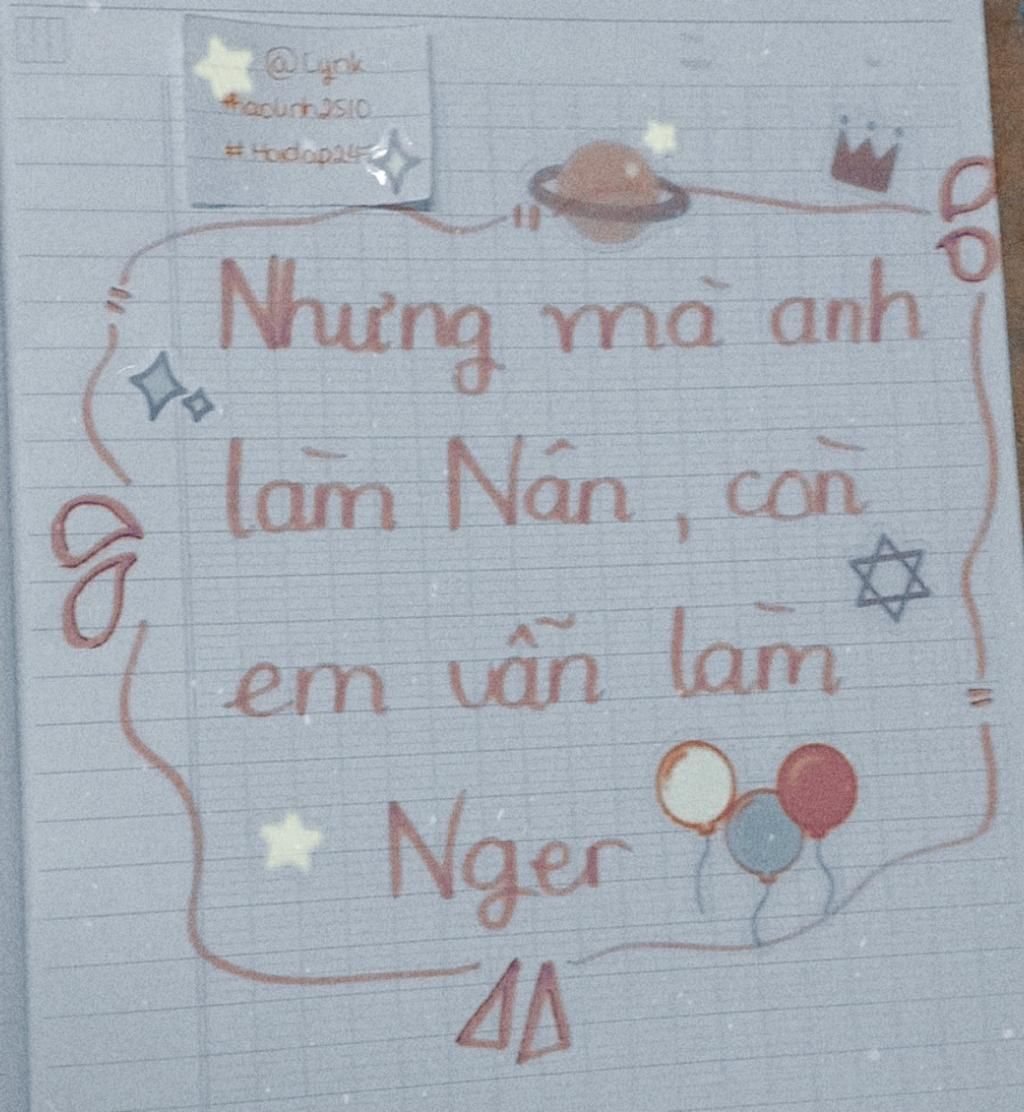 @Lynk
#haolinh2510
#Hoidap247
Nhưng mà anh
làm Nân, còn
em vẫn làm
Nger